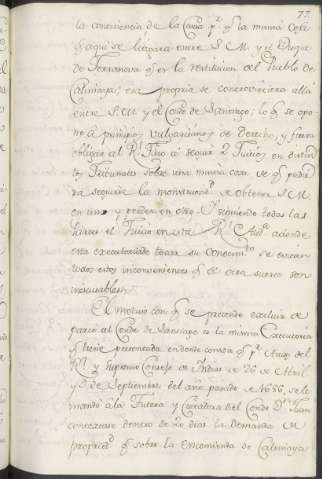 77.
la conveniencia de la Corona pr. q. la misma
q. aqui se litigara entre S. M. y el Duque
de Terranova q. es la restitucion del Pueblo de
Calimaya; esa propria se controvertiera allá
entre S. M. y el Conde de Santiago; lo q. se opo-
ne á principios vulgarismos de derecho, y fuera
obligar al Rl. Fisco á seguir 2 Juicios en distin-
tos Tribunales sobre una misma cosa de q. podia
seguirse la monstruosidad de obtener S. M.
en uno y perder en otro. Y siguiendo todas las
partes el Juicio en esta Rl. Audiencia adonde
esta executoriado tocar su conocimto. se evitan
todos estos inconvenientes q. de otra suerte son
inevitables.
El motivo con q. se pretende excluir de
parte al Conde de Santiago es la misma Executoria
q. tiene presentada en donde consta q. pr. Autos del
Rl. y Supremo Consejo de Indias de 26 de Abril
y 5 de Septiembre del año pasado de 1686, se le
mandó á la Tutora y Curadora del Conde Dn. Juan
contextase dentro de 20 dias la Demanda de
propriedd. q. sobre la Encomienda de Calimaya